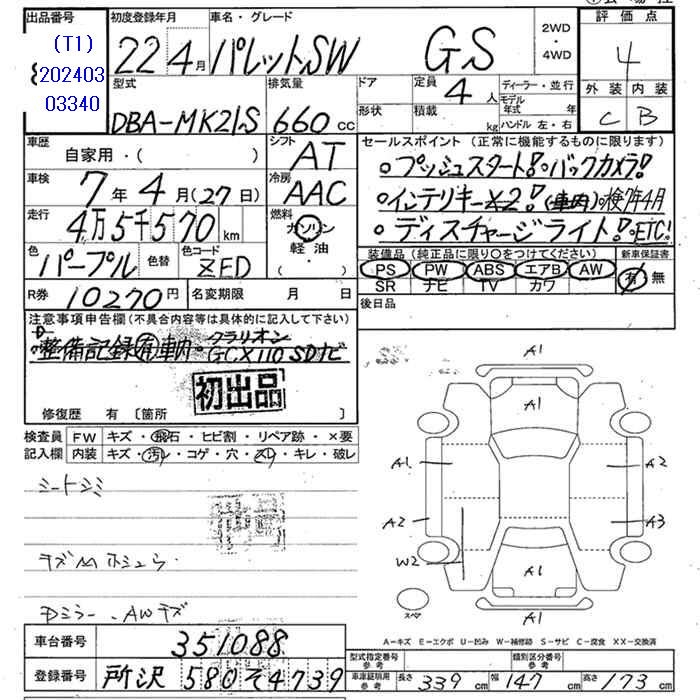 出品番号
(T1)
202403
03340
初度登録年月
22年4月
車名・グレード
パレットSW GS
2WD
・
4WD
評価点
4
外装 内装
C B
型式
DBA-MK21S
排気量
660cc
ドア
形状
定員 4人
積載 kg
ディーラー・並行
モデル年式 年
ハンドル 左・右
車歴
自家用・( )
シフト
AT
車検
7年4月(27日)
冷房
AAC
走行
4万5千570km
燃料
ガソリン
軽油
・
( )
色
パープル
色替
色コード
ZED
R券 10270円
名変期限 月 日
セールスポイント(正常に機能するものに限ります)
。プッシュスタート!。バックカメラ!
。インテリキー×2!(車内)。検7年4月
。ディスチャージライト!。ETC!
装備品(純正品に限り〇をつけてください)
新車保証書
PS PW ABS エアB AW
SR ナビ TV カワ
有・無
後日品
注意事項申告欄(不具合内容等は具体的に記入して下さい)
。整備記録有車内。クラリオン
GCX110 SDナビ
初出品
修復歴 有 〔箇所 〕
検査員
記入欄
FW キズ・飛石・ヒビ割・リペア跡・×要
内装 キズ・汚レ・コゲ・穴・スレ・キレ・破レ
シートシミ
Dミラー、AWキズ
A1
A1
A1 A2
A2 A3
W2
A1
A1
スペア
A-キズ E-エクボ U-凹み W-補修跡 S-サビ C-腐食 XX-交換済
車台番号 351088
登録番号 所沢 580 そ 4739
型式指定番号
参考
類別区分番号
参考
車庫証明用
参考
長さ 339cm 幅 147cm 高さ 173cm